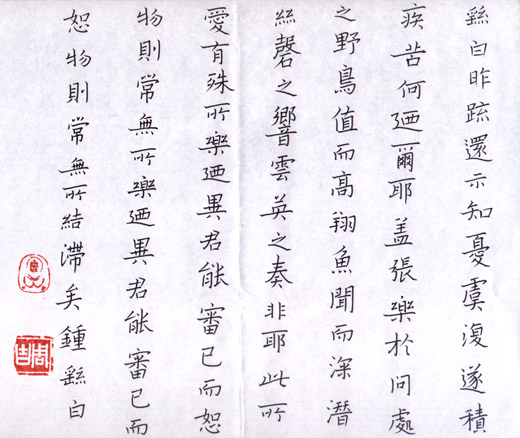 繇白昨疏還示知憂虞復遂積
疾苦何迺爾耶盖張樂於問處
之野鳥值而高翔魚聞而深潛
絲磬之響雲英之奏非耶此所
愛有殊所樂迺異君能審己而恕
物則常無所樂迺異君能審己而
恕物則常無所結滯矣鍾繇白